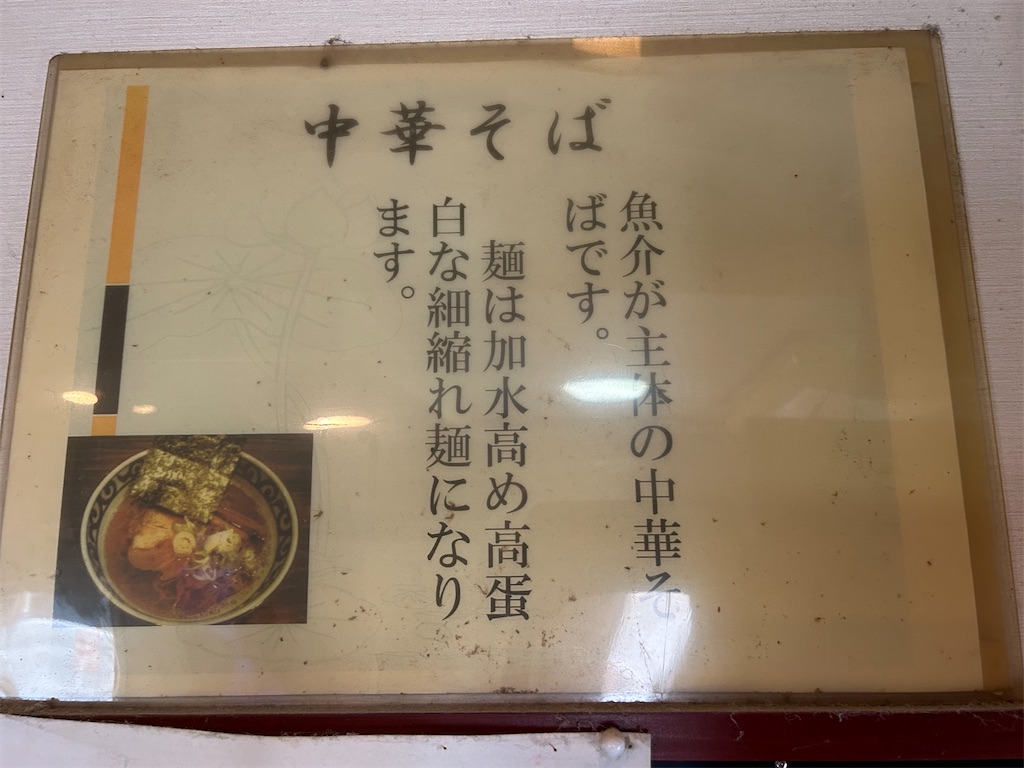 中華そば
魚介が主体の中華そ
ばです。
麺は加水高め高蛋
白な細縮れ麺になり
ます。